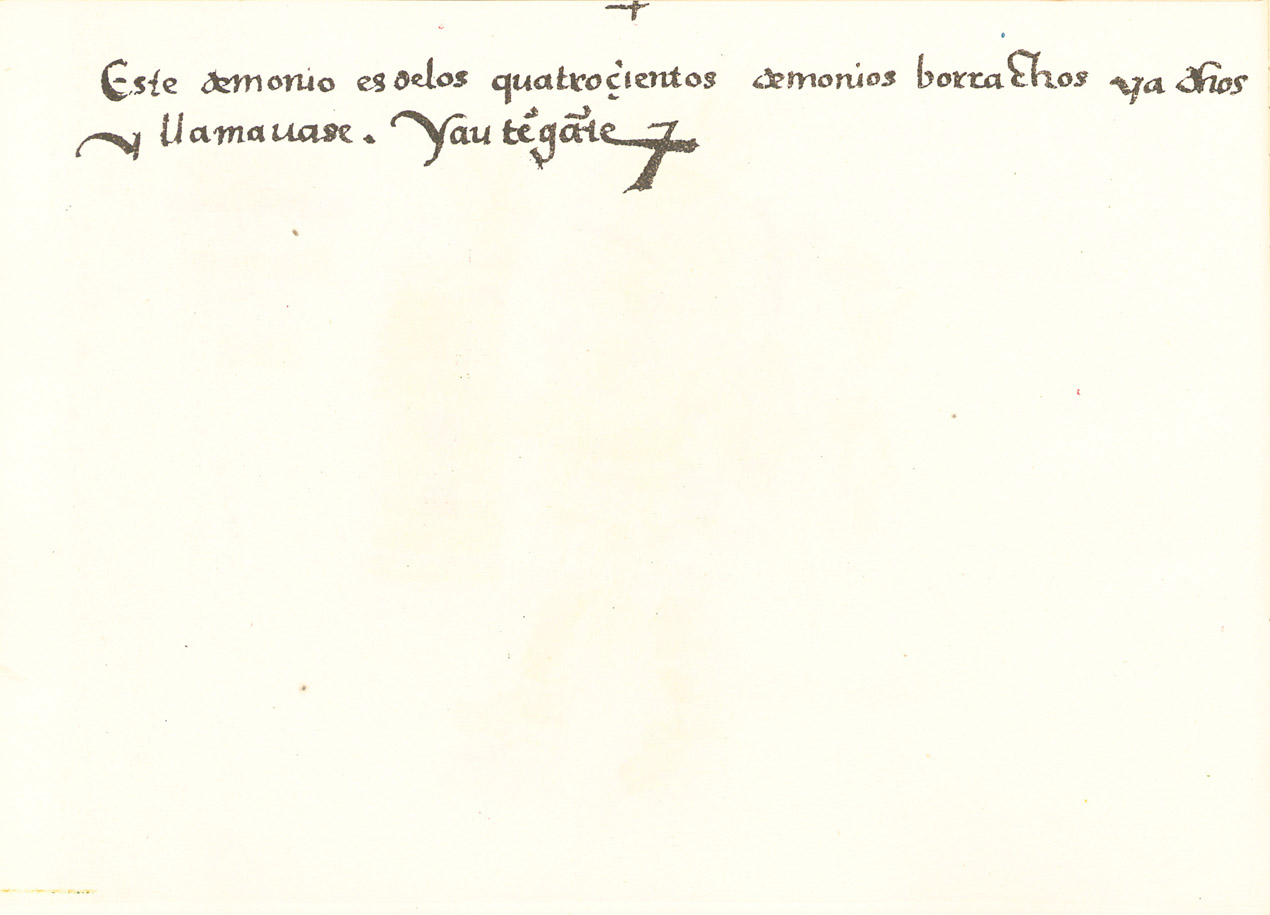 Este demonio es delos quatroçientos demonios borrachos ya dhos
y llamauase. Yau tẽgãte